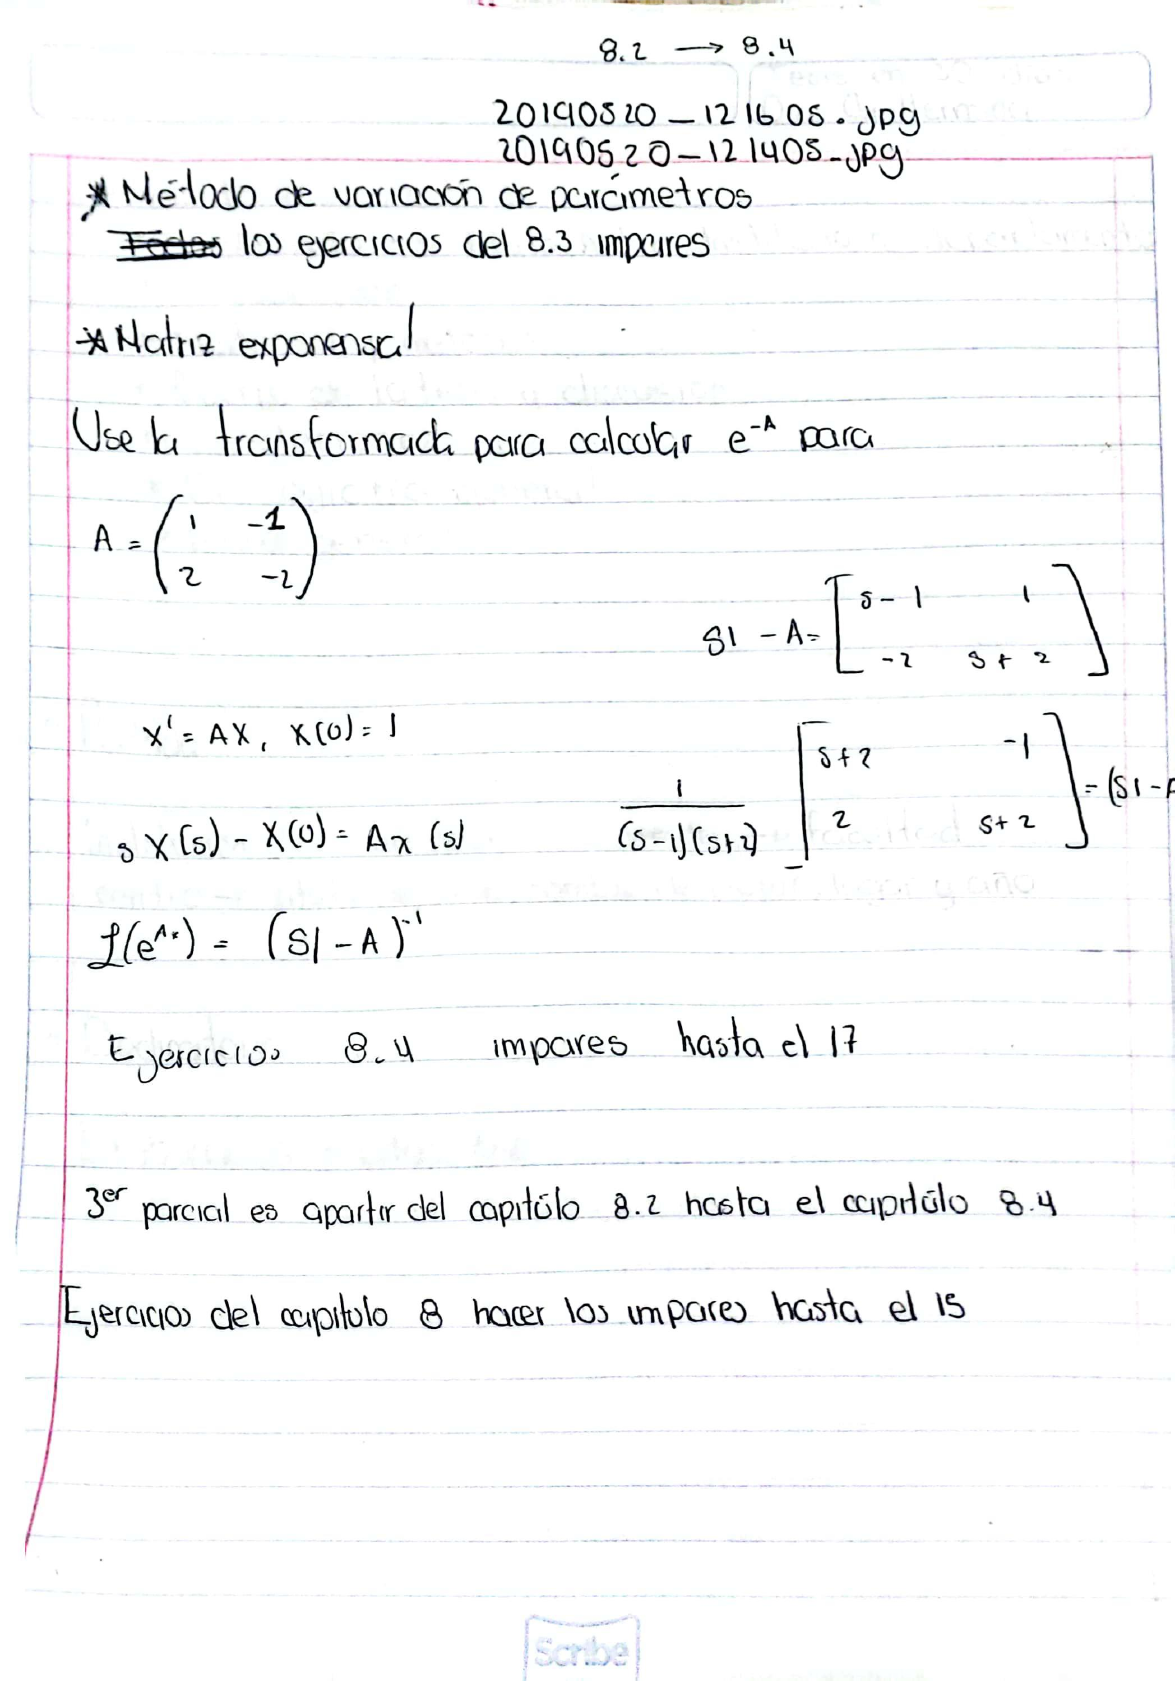 8.2 → 8.4
20190520_121605.jpg
20190520_121405.jpg
* Método de variación de parámetros
los ejercicios del 8.3 impares
* Matriz exponensial
Use la transformada para calcular e^-A para
A = ( 1 -1
2 -2 )
SI - A = [ s - 1 1
-2 s + 2 ]
X' = AX, X(0) = I
1 / (s-1)(s+2) [ s+2 -1
2 s+2 ] = (SI - A
s X(s) - X(0) = Ax(s)
ℒ(e^A·) = (SI - A)^-1
Ejercicios 8.4 impares hasta el 17
3er parcial es apartir del capitúlo 8.2 hasta el capitúlo 8.4
Ejercicios del capitulo 8 hacer los impares hasta el 15
Scribe